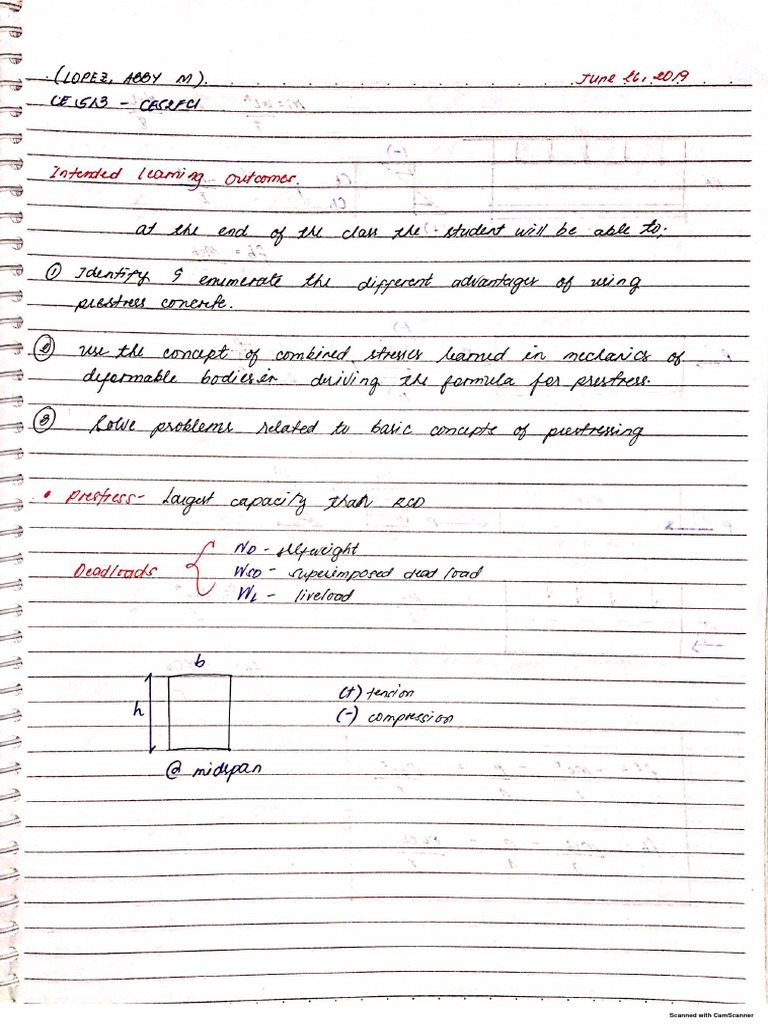 (LOPEZ, ABBY M). June 26, 2019
Intended learning outcomes,
at the end of the class the student will be able to;
① Identify & enumerate the different advantages of using
prestress concrete.
② use the concept of combined stresses learned in mechanics of
deformable bodies in deriving the formula for prestress.
③ Solve problems related to basic concepts of prestressing
• Prestress- Largest capacity than RCD
WD - selfweight
Deadloads
WSD - superimposed dead load
WL - liveload
b
h
(+) tension
(-) compression
@ midspan
Scanned with CamScanner